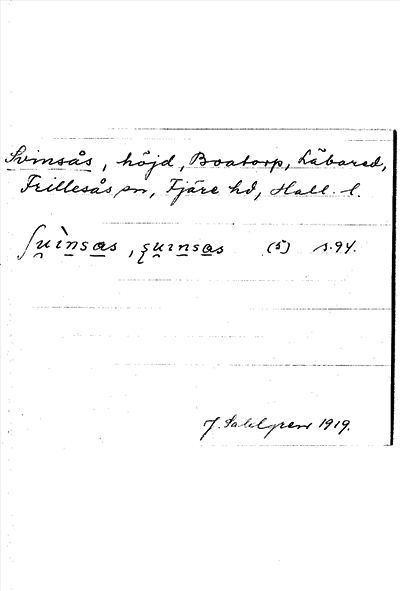 Svinsås, höjd, Boatorp, Läbared,
Frillesås sn, Fjäre hd, Hall. l.
ʃu̯ìnsas, ꞔu̯ınsɑs (5) s. 94.
J. Sahlgren 1919.